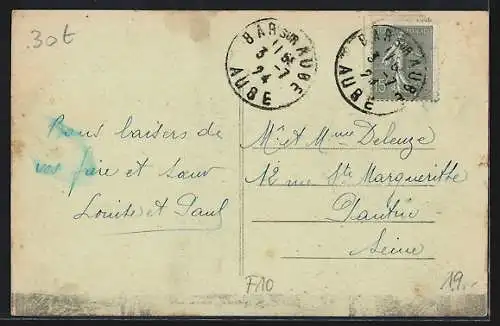 30t
BAR SUR AUBE
11 15
3 - 7
24
AUBE
BAR SUR AUBE
3 - 7
24
AUBE
15
Bons baisers de
vos frère et sœur
Louise et Paul
Mr et Mme Deleuze
12 rue Ste Margueritte
Pantin
Seine
F10
19.-